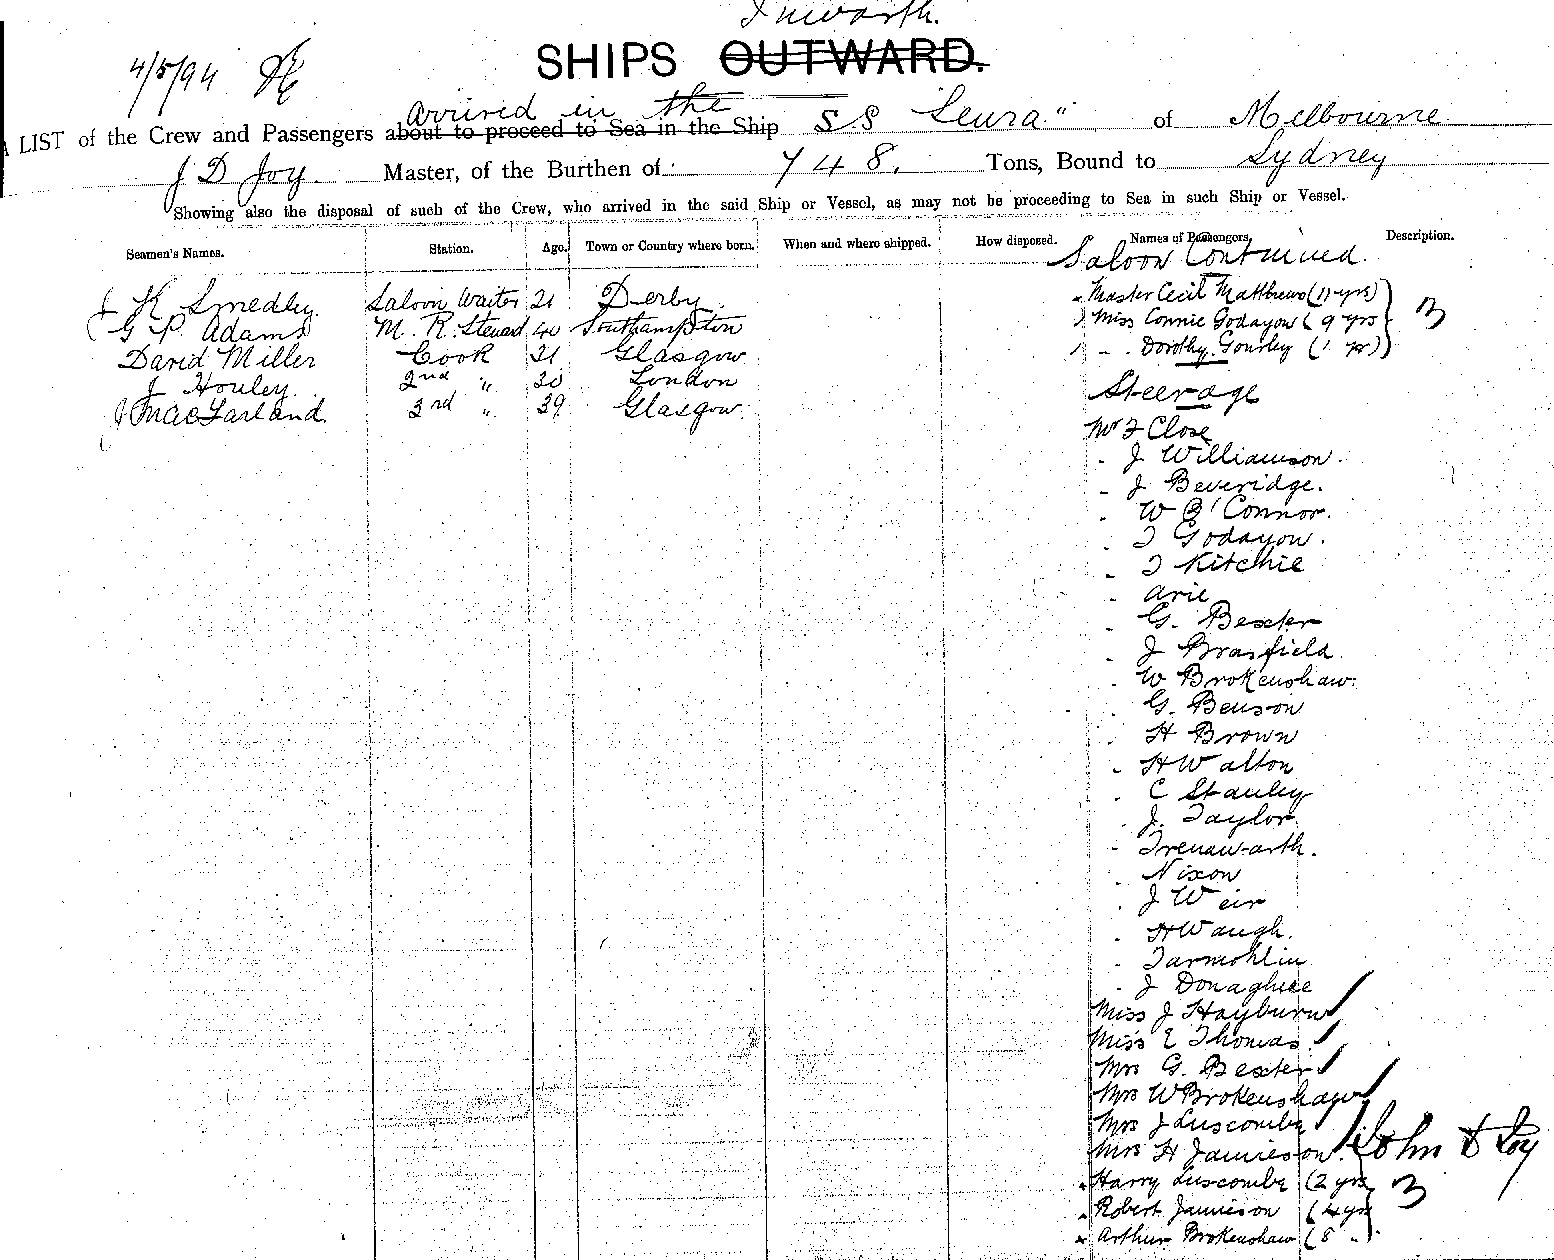 Inwards.
SHIPS OUTWARD.
4/5/94
Arrived in the
A LIST of the Crew and Passengers about to proceed to Sea in the Ship SS "Leura" of Melbourne
J D Joy. Master, of the Burthen of 748. Tons, Bound to Sydney
Showing also the disposal of such of the Crew, who arrived in the said Ship or Vessel, as may not be proceeding to Sea in such Ship or Vessel.
Seamen's Names. Station. Age. Town or Country where born. When and where shipped. How disposed. Names of Passengers. Description.
Saloon Continued.
J K Smedley. Saloon Waiter 21 Derby. Master Cecil Matthews (11 yrs) 3
G P. Adams M. R. Steward 40 Southampton Miss Connie Godayon (9 yrs)
David Miller Cook 31 Glasgow " Dorothy Gourley (1 yr)
J Houley. 2nd " 30 London
Steerage
J MacFarland 3rd " 39 Glasgow.
Mr F Close
- J Williamson.
- J Beveridge.
- W O'Connor.
- T Godayon.
- T Kitchie
- Arie
- G. Bexter
- J Brasfield
- W Brokenshaw.
- G. Benson
- H Brown
- H Walton
- C Stanley
- J. Taylor.
- Trenawarth.
- Nixon
- J Weir
- H Waugh.
-
- J Donaghiee
Miss J Hayburn
Miss E Thomas
Mrs G. Bexter
Mrs W Brokenshaw
Mrs J Luscombe
Mrs H Jamieson. John D Joy
Harry Luscombe (2 yrs 3
Robert Jamieson (4 yrs
Arthur Brokenshaw (8 "